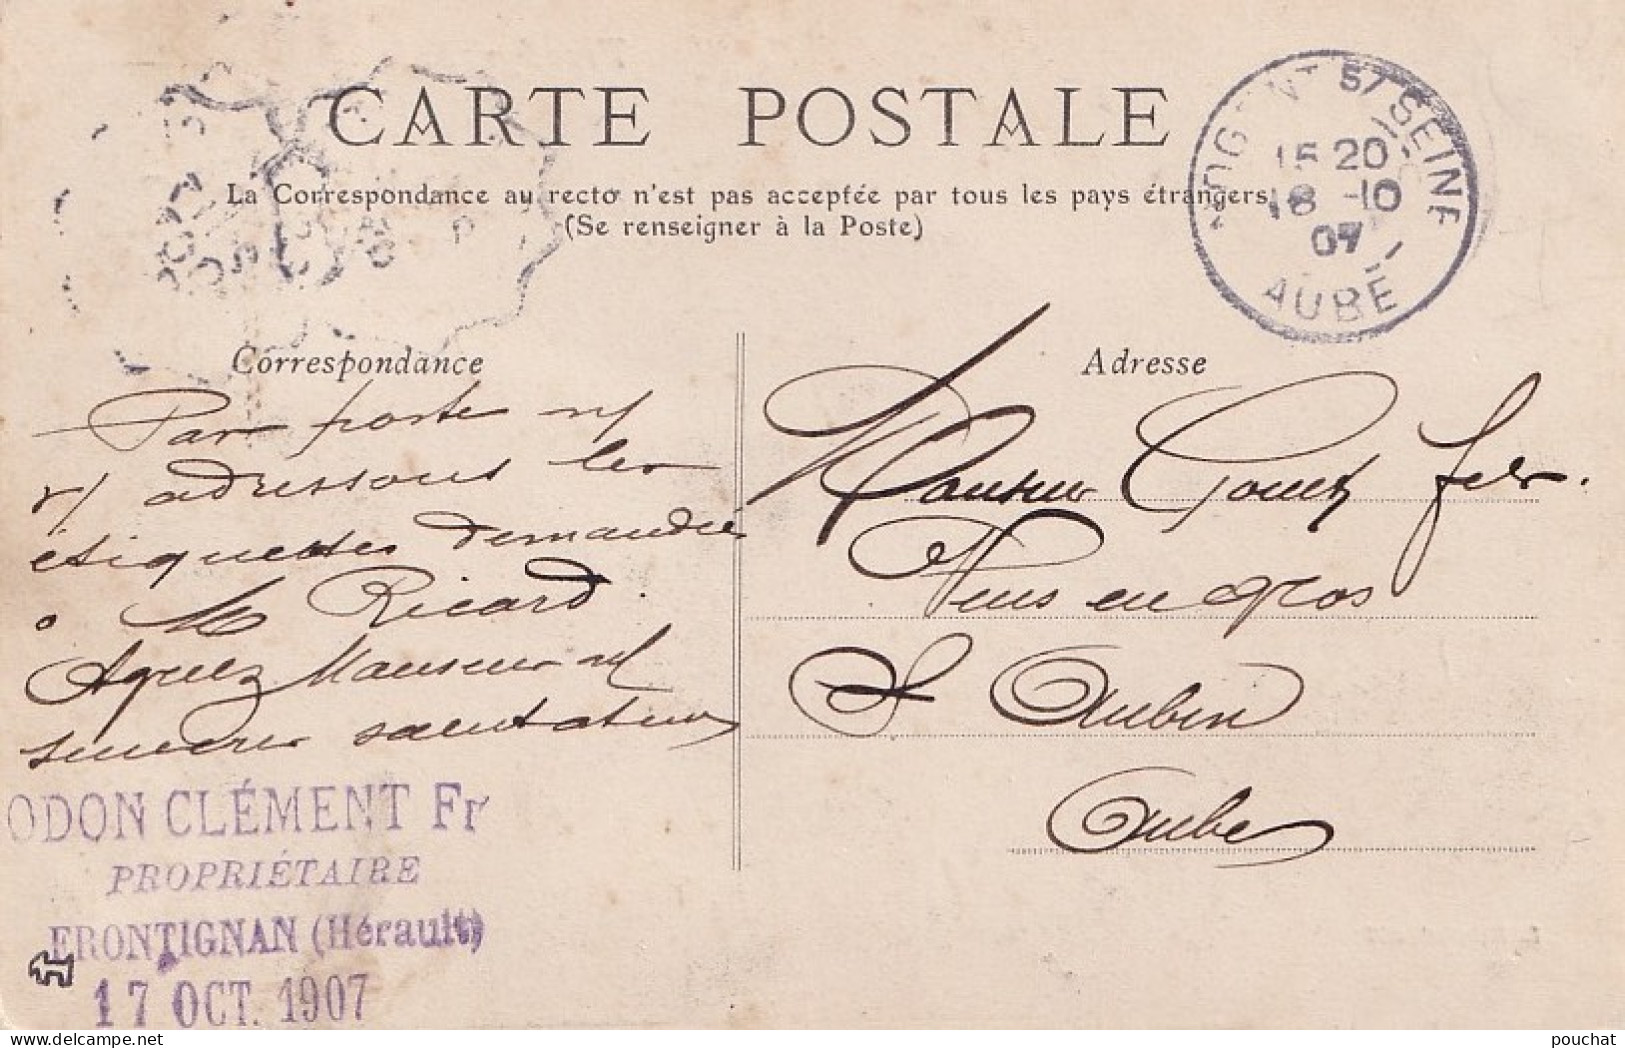 CARTE POSTALE
La Correspondance au recto n'est pas acceptée par tous les pays étrangers
(Se renseigner à la Poste)
S/SEINE
15 20
18 -10
07
AUBE
Correspondance
Par poste n/
v/ adressons les
étiquettes demandées
à Mr Ricard.
Agréez Monsieur
sincères salutations
ODON CLÉMENT Fr
PROPRIÉTAIRE
FRONTIGNAN (Hérault)
17 OCT. 1907
Adresse
Monsieur fils.
Vins en gros
St Aubin
Aube
pouchat